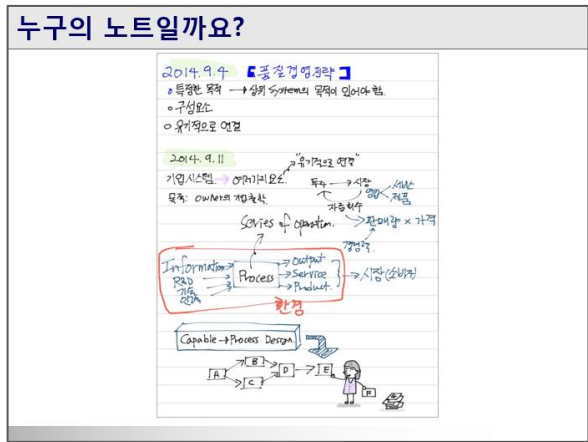 누구의 노트일까요?
2014.9.4 【품질경영전략】
특정한 목적 → 상위 System의 목적이 있어야 함.
구성요소
유기적으로 연결
2014.9.11
"유기적으로 연결"
기업시스템. → 여러가지 요소.
투자 → 시장
영업 서비스 제품
목적: owner의
자금회수
→ 판매량 × 가격
Series of operation.
경쟁력.
Information
R&D
기술
인력
Process
Output
Service
Product.
→ 시장(소비자)
환경
Capable → Process Design
A
B
C
D
E